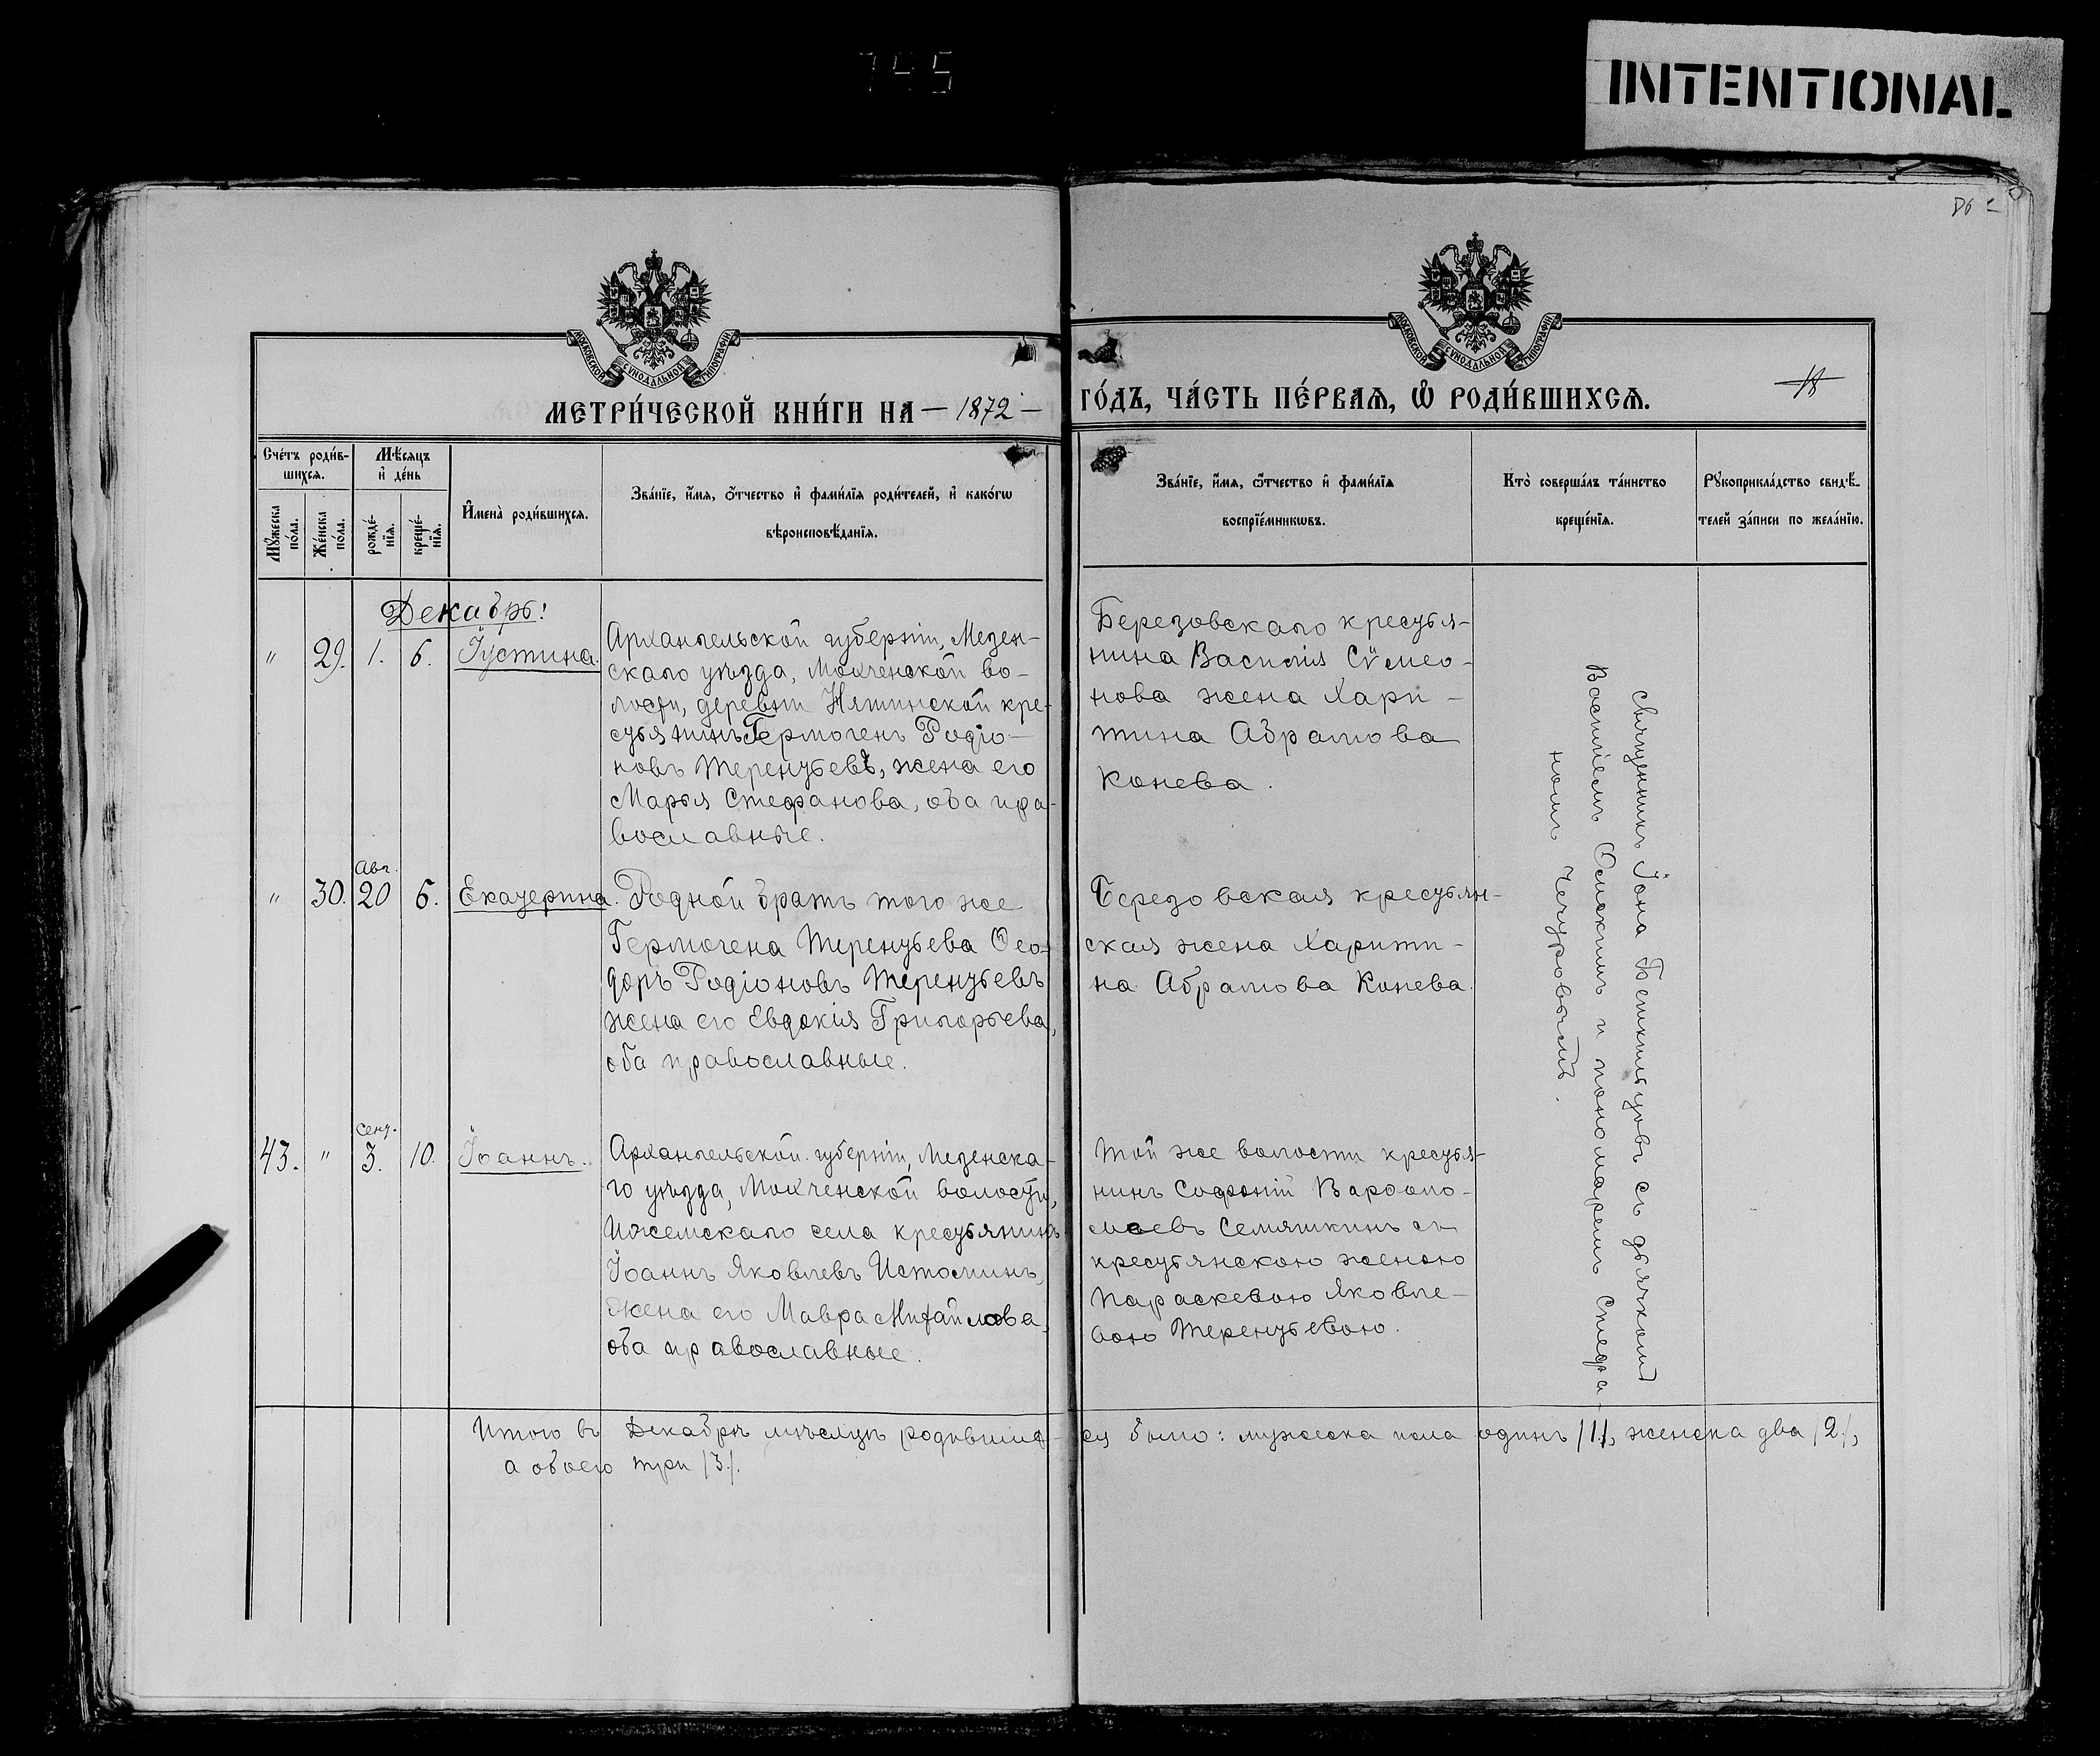 745
INTENTIONAL
МОСКОВСКОЙ СѴНОДАЛЬНОЙ ТИПОГРАФІИ
МОСКОВСКОЙ СѴНОДАЛЬНОЙ ТИПОГРАФІИ
МЕТРИ́ЧЕСКОЙ КНИ́ГИ НА — 1872 —
ГО́ДЪ, ЧА́СТЬ ПЕ́РВАЯ, Ѡ҆ РОДИ́ВШИХСЯ.
18
Сче́тъ роди́в-
шихся.
Мꙋ́жеска
по́ла.
Же́нска
по́ла.
Мѣ́сяцъ
и҆ де́нь
рожде́-
нїя.
креще́-
нїя.
И҆мена̀ роди́вшихся.
Зва́нїе, и҆́мя, ѻ҆́тчество и҆ фами́лїя роди́телей, и҆ како́гѡ
вѣроисповѣ́данїя.
Зва́нїе, и҆́мя, ѻ҆́тчество и҆ фами́лїя
воспрїе́мникѡвъ.
Кто̀ соверша́лъ та́инство
креще́нїя.
Рꙋкоприкла́дство свидѣ́-
телей за́писи по жела́нїю.
Декабрь!
" 29. 1. 6. Іустина.
Архангельской губерніи, Мезен-
скаго уѣзда, Мохченской во-
лости, деревни Няшинской кре-
стьянинъ Гермогенъ Родіо-
новъ Терентьевъ, жена его
Марья Стефанова, оба пра-
вославные.
Березовскаго крестья-
нина Василія Сѵмео-
нова жена Хари-
тина Абрамова
Конева.
" 30. Авг. 20 6. Екатерина.
Родной братъ того же
Гермогена Терентьева Ѳео-
доръ Родіоновъ Терентьевъ
жена его Евдокія Григорьева,
оба православные.
Березовская крестьян-
ская жена Харити-
на Абрамова Конева.
43. " Сент. 3. 10. Іоаннъ.
Архангельской губерніи, Мезенска-
го уѣзда, Мохченской волости,
Ижемскаго села крестьянинъ
Іоаннъ Яковлевъ Истоминъ,
жена его Мавра Михайлова,
оба православные.
Той же волости крестья-
нинъ Софоній Варѳоло-
меевъ Семяшкинъ съ
крестьянскою женою
Параскевою Яковле-
вою Терентьевою.
Священникъ Іона съ дьячкомъ
Василіемъ и пономаремъ Стефа-
номъ
Итого въ Декабрѣ мѣсяцѣ родивших-ся было: мужеска пола одинъ /1/, женска два /2/,
а обоего три /3/.